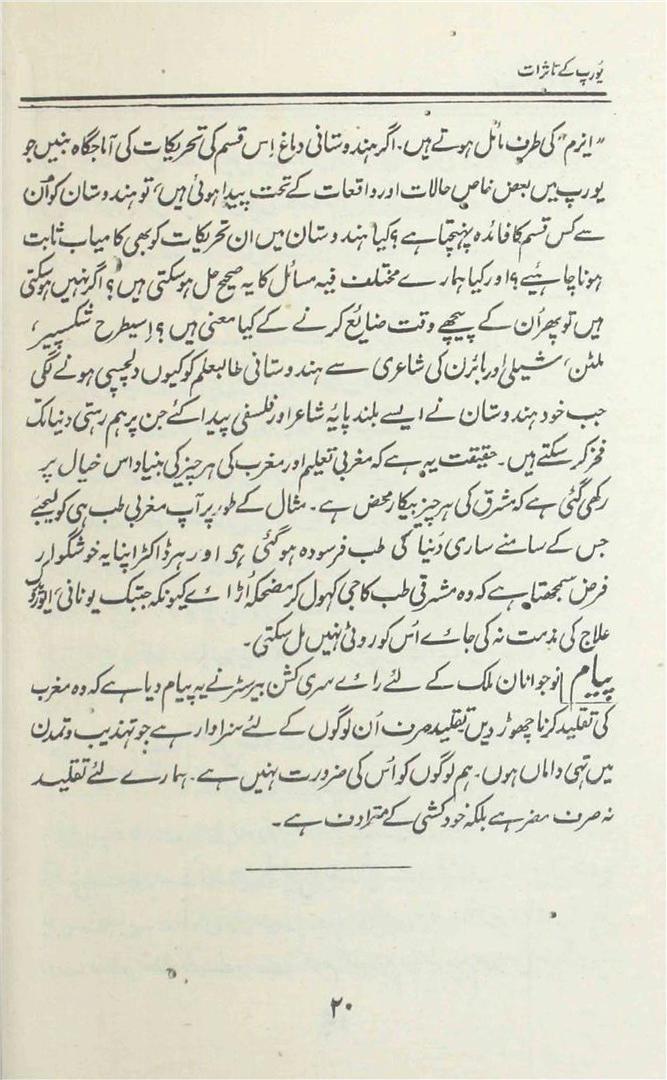 یورپ کے تاثرات
"ازم" کی طرف مائل ہوتے ہیں۔ اگر ہندوستانی دماغ اِس قسم کی تحریکات کی آماجگاہ بنیں جو
یورپ میں بعض خاص حالات اور واقعات کے تحت پیدا ہوئی ہیں، تو ہندوستان کو اُن
سے کس قسم کا فائدہ پہنچتا ہے؟ کیا ہندوستان میں ان تحریکات کو بھی کامیاب ثابت
ہونا چاہئیے؟ اور کیا ہمارے مختلف فیہ مسائل کا یہ صحیح حل ہوسکتی ہیں؟ اگر نہیں ہوسکتی
ہیں تو پھر اُن کے پیچھے وقت ضائع کرنے کے کیا معنی ہیں؟ اِسیطرح شکسپیر،
ملٹن، شیلی اور بائرن کی شاعری سے ہندوستانی طالبعلم کو کیوں دلچسپی ہونے لگی
جب خود ہندوستان نے ایسے بلند پایۂ شاعر اور فلسفی پیدا کئے جن پر ہم رہتی دنیا تک
فخر کرسکتے ہیں۔ حقیقت یہ ہے کہ مغربی تعلیم اور مغرب کی ہر چیز کی بنیاد اس خیال پر
رکھی گئی ہے کہ مشرق کی ہر چیز بیکار محض ہے۔ مثال کے طور پر آپ مغربی طب ہی کو لیجئے
جس کے سامنے ساری دُنیا کی طب فرسودہ ہوگئی ہی اور ہر ڈاکٹر اپنا یہ خوشگوار
فرض سمجھتا ہے کہ وہ مشرقی طب کا جی کھول کر مضحکہ اُڑائے کیونکہ جبتک یونانی، ایورویدک
علاج کی مذمت نہ کی جائے اُس کو روٹی نہیں مل سکتی۔
پیام نوجوانان ملک کے لئے رائے ہری کشن بیرسٹر نے یہ پیام دیا ہے کہ وہ مغرب
کی تقلید کرنا چھوڑ دیں، تقلید صرف اُن لوگوں کے لئے سزاوار ہے جو تہذیب و تمدن
میں تہی داماں ہوں۔ ہم لوگوں کو اُس کی ضرورت نہیں ہے۔ ہمارے لئے تقلید
نہ صرف مضر ہے بلکہ خودکشی کے مترادف ہے۔
۲۰